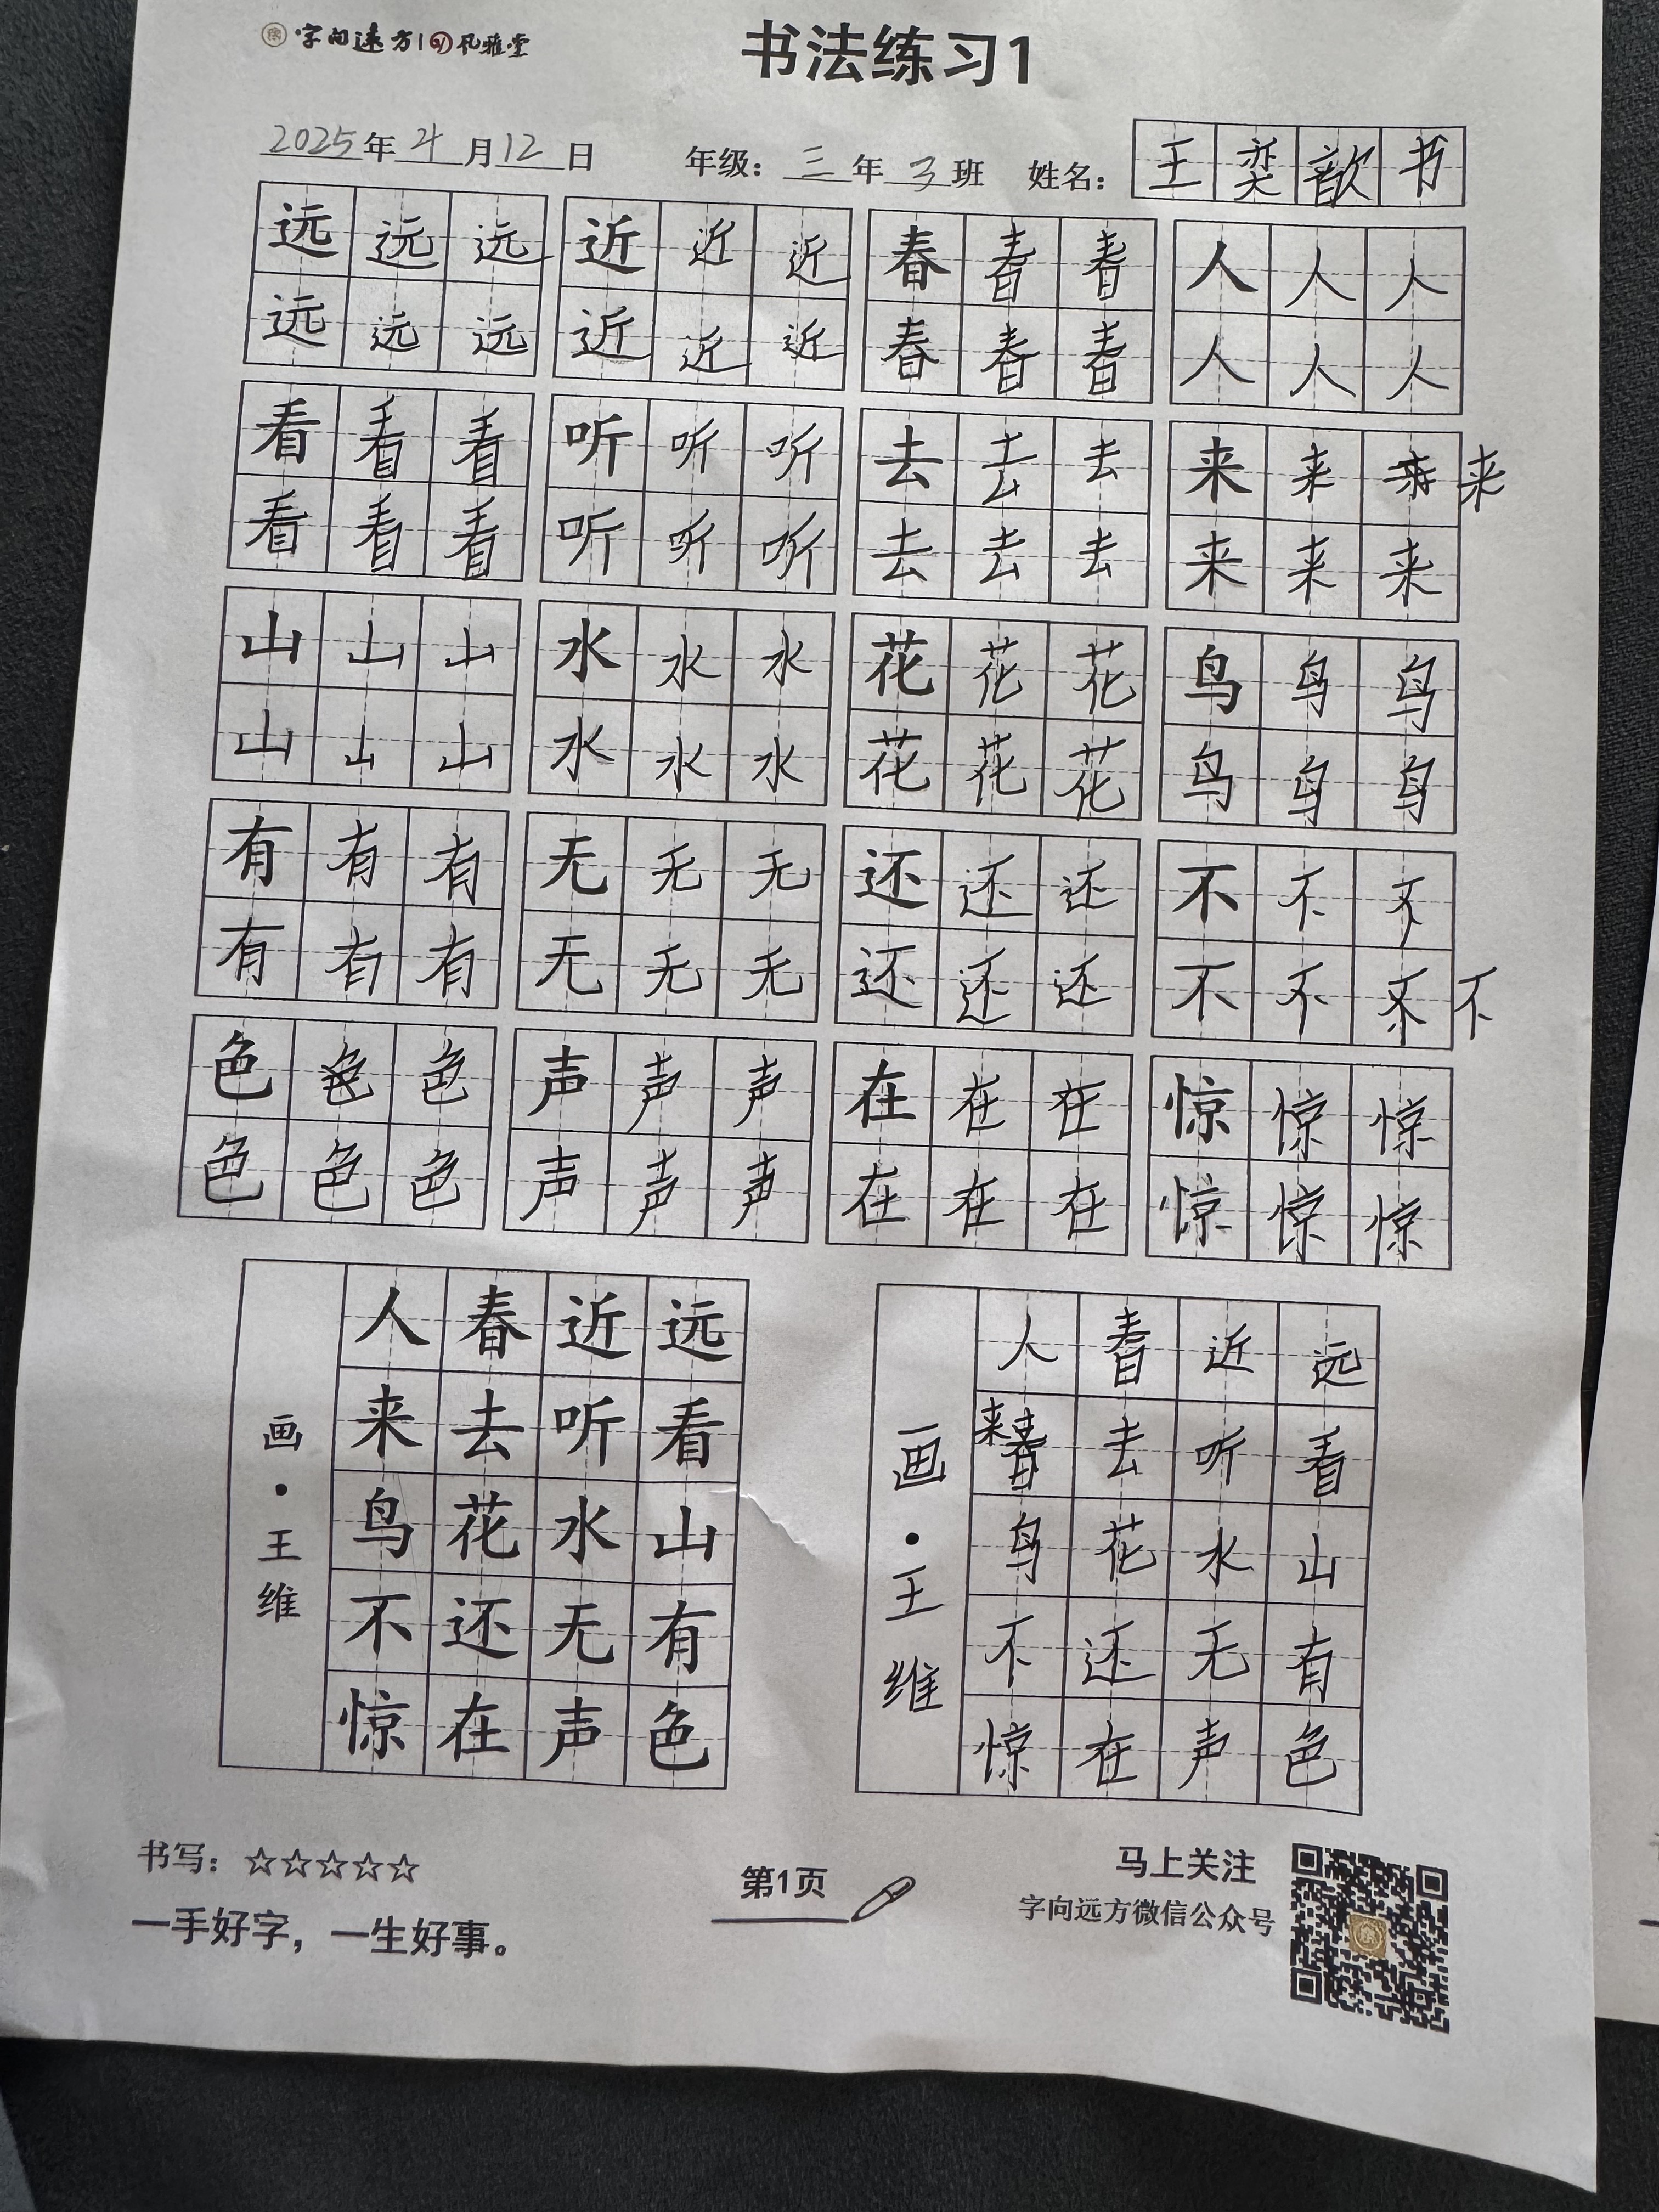 字向远方 风雅堂
书法练习1
2025年4月12日 年级：三年3班 姓名：王奕歆书
远远远 近近近 春春春 人人人
远远远 近近近 春春春 人人人
看看看 听听听 去去去 来来 来
看看看 听听听 去去去 来来来
山山山 水水水 花花花 鸟鸟鸟
山山山 水水水 花花花 鸟鸟鸟
有有有 无无无 还还还 不不不
有有有 无无无 还还还 不不不不
色色色 声声声 在在在 惊惊惊
色色色 声声声 在在在 惊惊惊
远看山有色
近听水无声
春去花还在
人来鸟不惊
画·王维
远看山有色
近听水无声
春去花还在
人来鸟不惊
画·王维
书写：☆☆☆☆☆
一手好字，一生好事。
第1页
马上关注
字向远方微信公众号